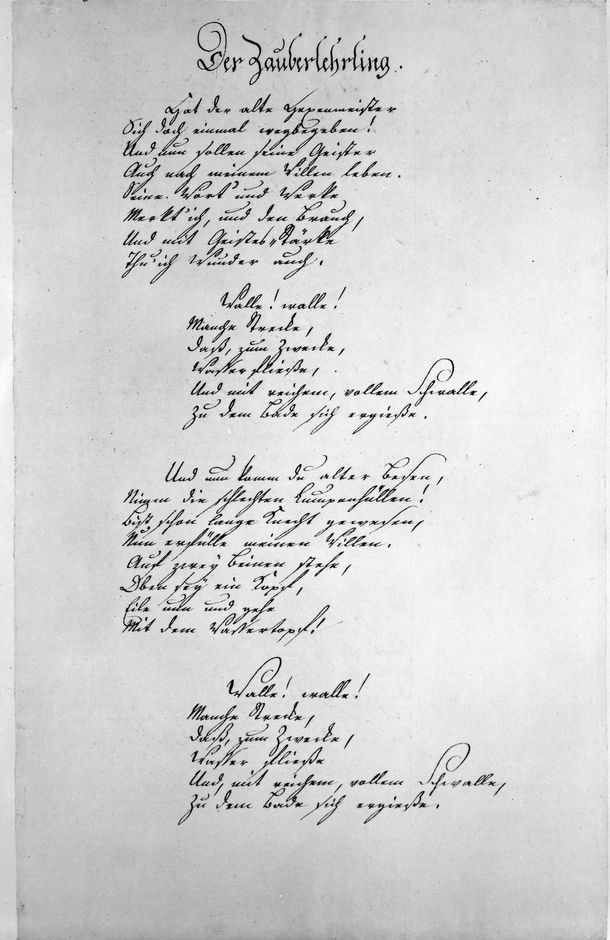 Der Zauberlehrling.
Hat der alte Hexenmeister
Sich doch einmal wegbegeben!
Und nun sollen seine Geister
Auch nach meinem Willen leben.
Seine Wort' und Werke
Merkt' ich, und den Brauch,
Und mit Geistes-Stärke
Thu' ich Wunder auch.
Walle! walle!
Manche Strecke,
Daß, zum Zwecke,
Wasser fließe,
Und mit reichem, vollem Schwalle,
Zu dem Bade sich ergieße.
Und nun komm du alter Besen,
Nimm die schlechten Lumpenhüllen!
Bist schon lange Knecht gewesen,
Nun erfülle meinen Willen.
Auf zwey Beinen stehe,
Oben sey ein Kopf,
Eile nun und gehe
Mit dem Wassertopf!
Walle! walle!
Manche Strecke,
Daß, zum Zwecke,
Wasser fließe
Und, mit reichem, vollem Schwalle,
Zu dem Bade sich ergieße.